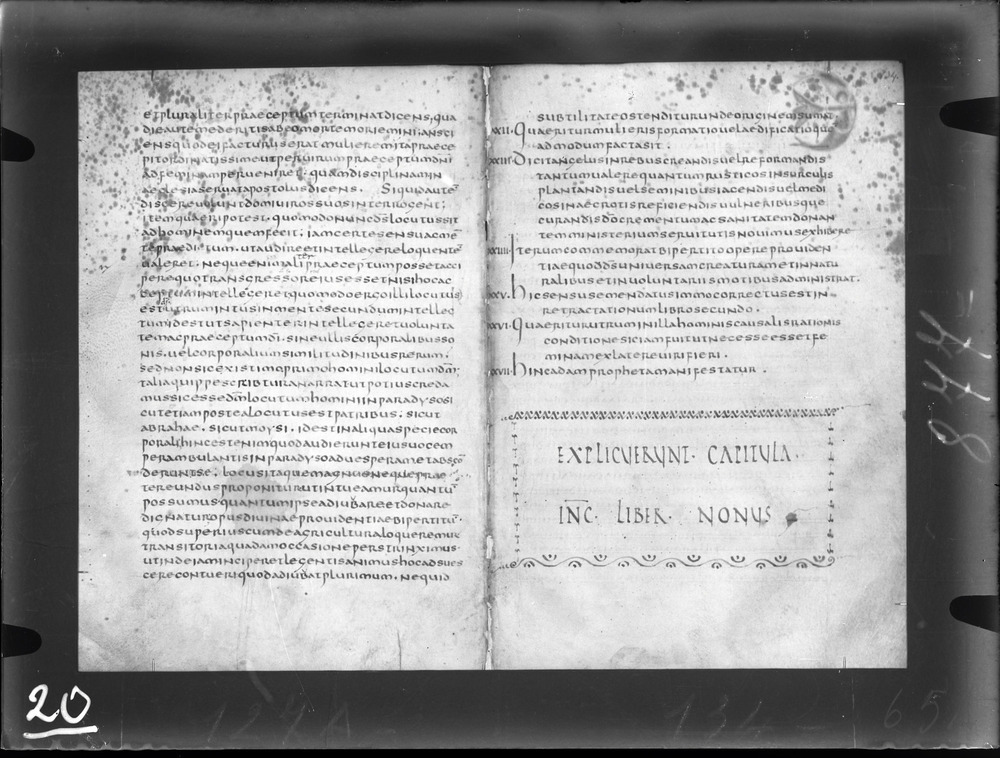 et pluraliter praeceptum terminat dicens, qua
die autem ederitis ab eo morte moriemini; an sci
ens quod ei facturus erat mulierem ita praece
pit ordinatissime ut per uirum praeceptum dnī
ad feminam perueniret; quam disciplinam in
aeclesia seruat apostolus dicens. Si quid autē
discere uolunt domi uiros suos interrogent;
Item quaeri potest, quomodo nunc d̄s locutus sit
ad hominem quem fecit; iam certe sensu ac mē
te praeditum, ut audire et intellegere loquentē
ualeret; neque enim aliter praeceptum posset acci
pere quo transcresso reus esset nisi hoc ac
ceptum intellegeret; quomodo ergo illi locutus
est d̄s utrum intus in mente secundum intellec
tum; id est ut sapienter intellegeret uolunta
tem ac praeceptum dī. sine ullis corporalibus so
nis. uel corporalium similitudinibus rerum;
sed non sic existimo primo homini locutum dm̄;
talia quippe scribtura narrat ut potius creda
mus sic esse dm̄ locutum homini in paradyso si
cut etiam postea locutus est patribus; sicut
abrahae. sicut moysi. id est in aliqua specie cor
porali; hinc est enim quod audierunt eius uocem
perambulantis in paradyso ad uesperam et abscō
derunt se; locus itaque magnus neque prae
tereundus proponitur ut intueamur quantū
possumus. quantum ipse adiubare et donare
dignatur opus diuinae prouidentiae bipertitū.
quod superius cum de agricultura loqueremur
transitoria quadam occasione perstrinximus.
ut inde iam inciperet legentis animus hoc adsues
cere contueri quod adiubat plurimum. ne quid
subtilitate ostenditur unde originem sumat
XXII. Quaeritur mulieris formatio uel aedificatio que
ad modum facta sit.
XXIII. Dicit angelus in rebus creandis uel reformandis
tantum ualere quantum rusticos in surculis
plantandis uel seminibus iacendis uel medi
cos in aegrotis reficiendis uulneribusque
curandis d̄o crementum ac sanitatem donan
tem ministerium seruitutis nouimus exhibere
XXIIII. Iterum commemorat bipertito opere prouiden
tiae quo d̄s uniuersam creaturam et in natu
ralibus et in uoluntariis motibus administrat.
XXV. Hic sensus emendatus immo correctus est in
retractationum libro secundo.
XXVI. Quaeritur utrum in illa hominis causalis rationis
conditione sic iam fuit ut necesse esset fe
minam ex latere uiri fieri.
XXVII. Hinc adam propheta manifestatur.
EXPLICVERVNT· CAPITVLA·
INC̄· LIBER· NONUS
20